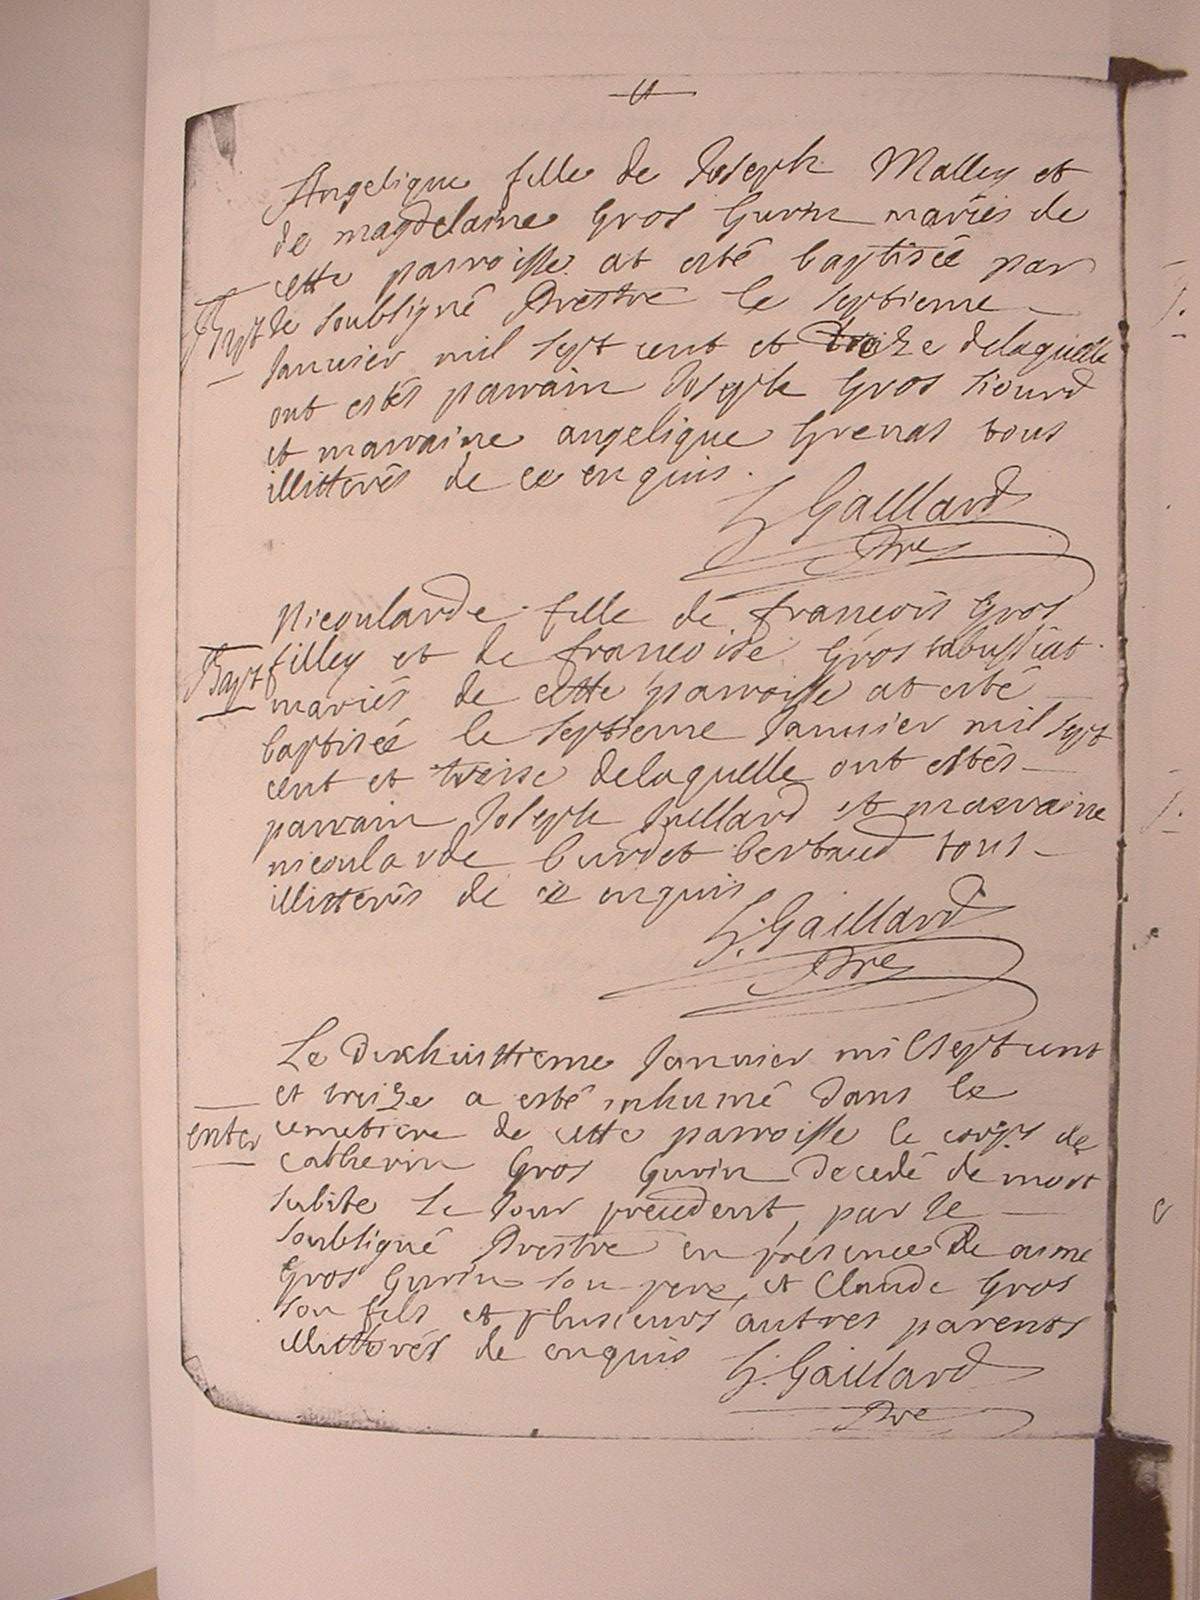 Angelique fille de Joseph Malley et
de magdelaine Gros Gurin mariés de
cette parroisse at esté baptisée par
Bapt le soubsigné Prestre le septieme
Janvier mil sept cent et treize delaquelle
ont estés parrain Joseph Gros
et marraine angelique Grenat tous
illitterés de ce enquis.
Gaillard
Pre
Nicoularde fille de francois Gros
Bapt filley et de francoise Gros
mariés de cette parroisse at esté
baptisée le septieme Janvier mil sept
cent et treise delaquelle ont estés
parrain Joseph Jullard et marraine
nicoularde burdet bertaud tous
illitterés de ce enquis
G. Gaillard
Pre
Le dixhuittieme Janvier mil sept cent
et treize a esté inhumé dans le
enter cemetiere de cette parroisse le corps de
catherin Gros Gurin decedé de mort
subite le Jour precedent, par le
soubsigné Prestre en presence de aimé
Gros Gurin son pere, et Claude Gros
son fils et plusieurs autres parents
illitterés de enquis G. Gaillard
Pre